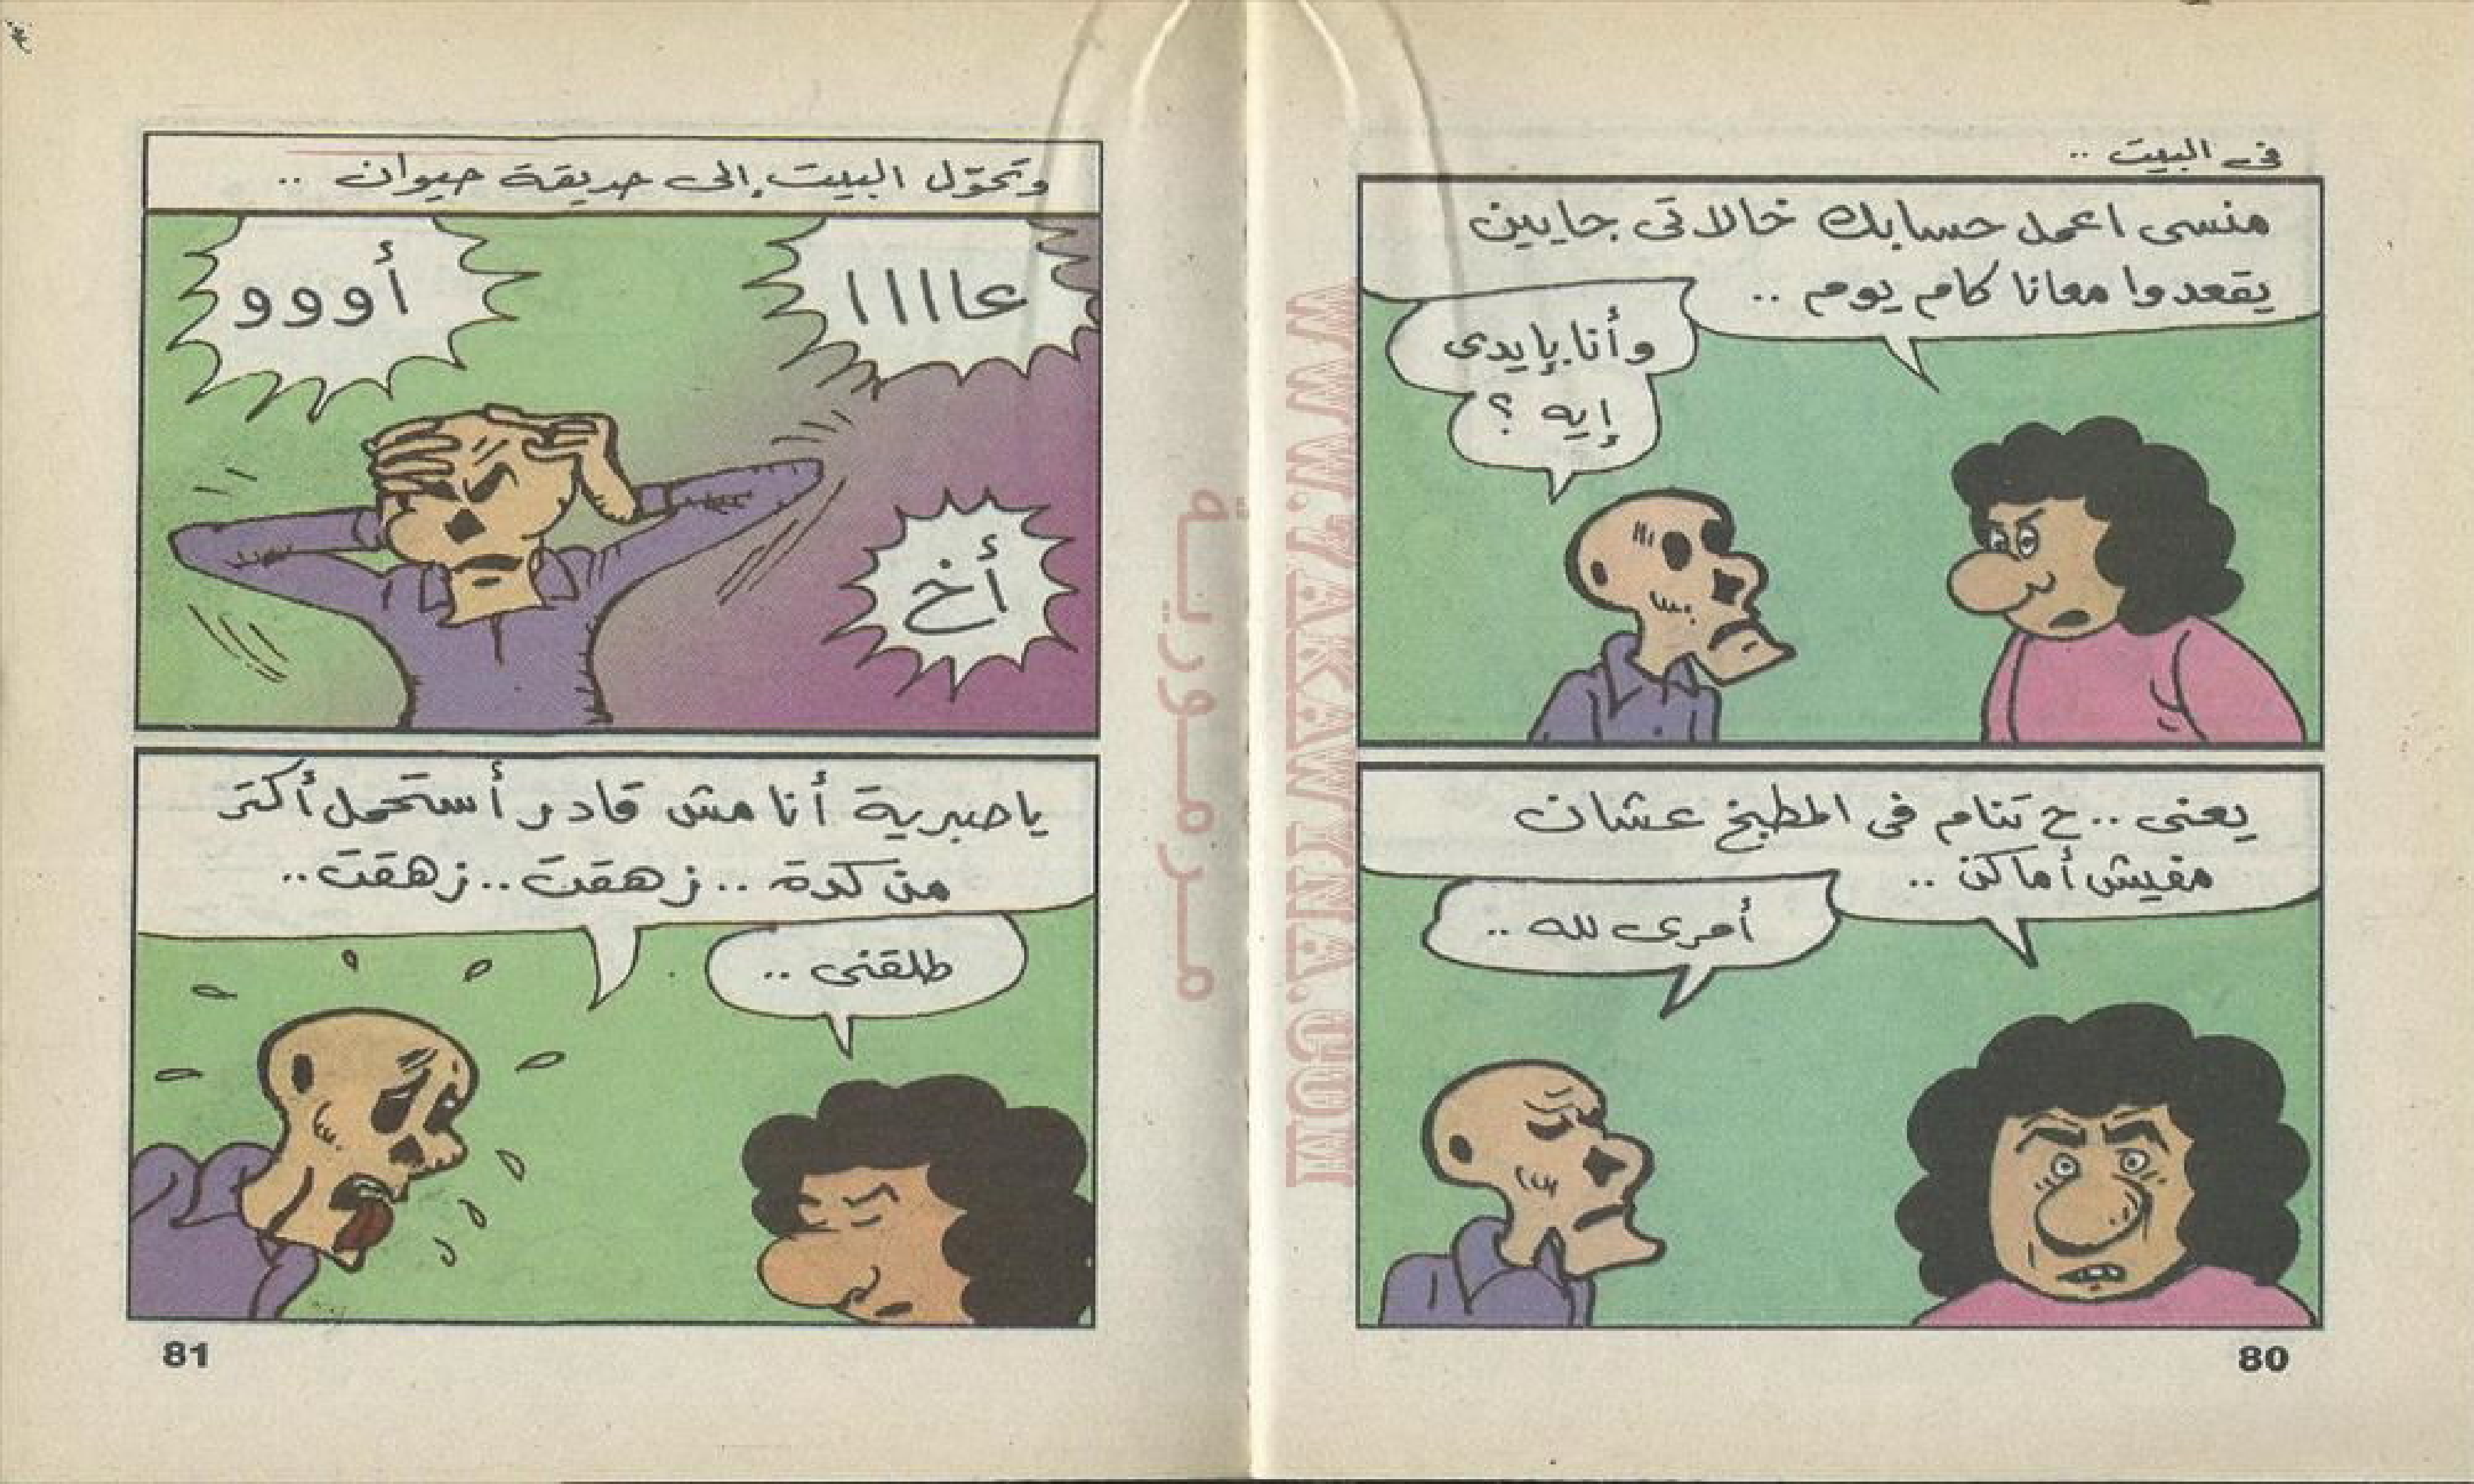 في البيت ..
منسى اعمل حسابك خالاتى جايين
يقعدوا معانا كام يوم ..
وأنا بإيدى
إيه ؟
يعنى .. ح تنام فى المطبخ عشان
مفيش أماكن ..
أمرى لله ..
80
وتحوّل البيت إلى حديقة حيوان ..
عاااا
أووو
أخ
ياصبرية أنا مش قادر أستحمل أكتر
من كدة .. زهقت .. زهقت ..
طلقنى ..
81
مرمورية
WWW.7AKAWINA.COM